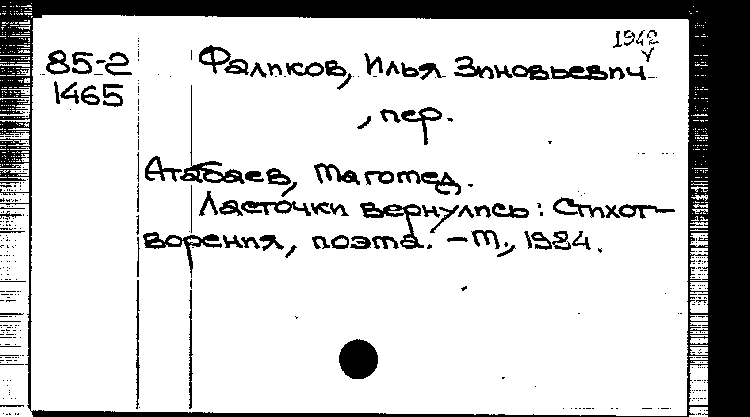 1942
85-2 Фаликов, Илья Зиновьевич
1465
, пер.
Атабаев, Магомед.
Ласточки вернулись: Стихот-
ворения, поэма. – М., 1984.